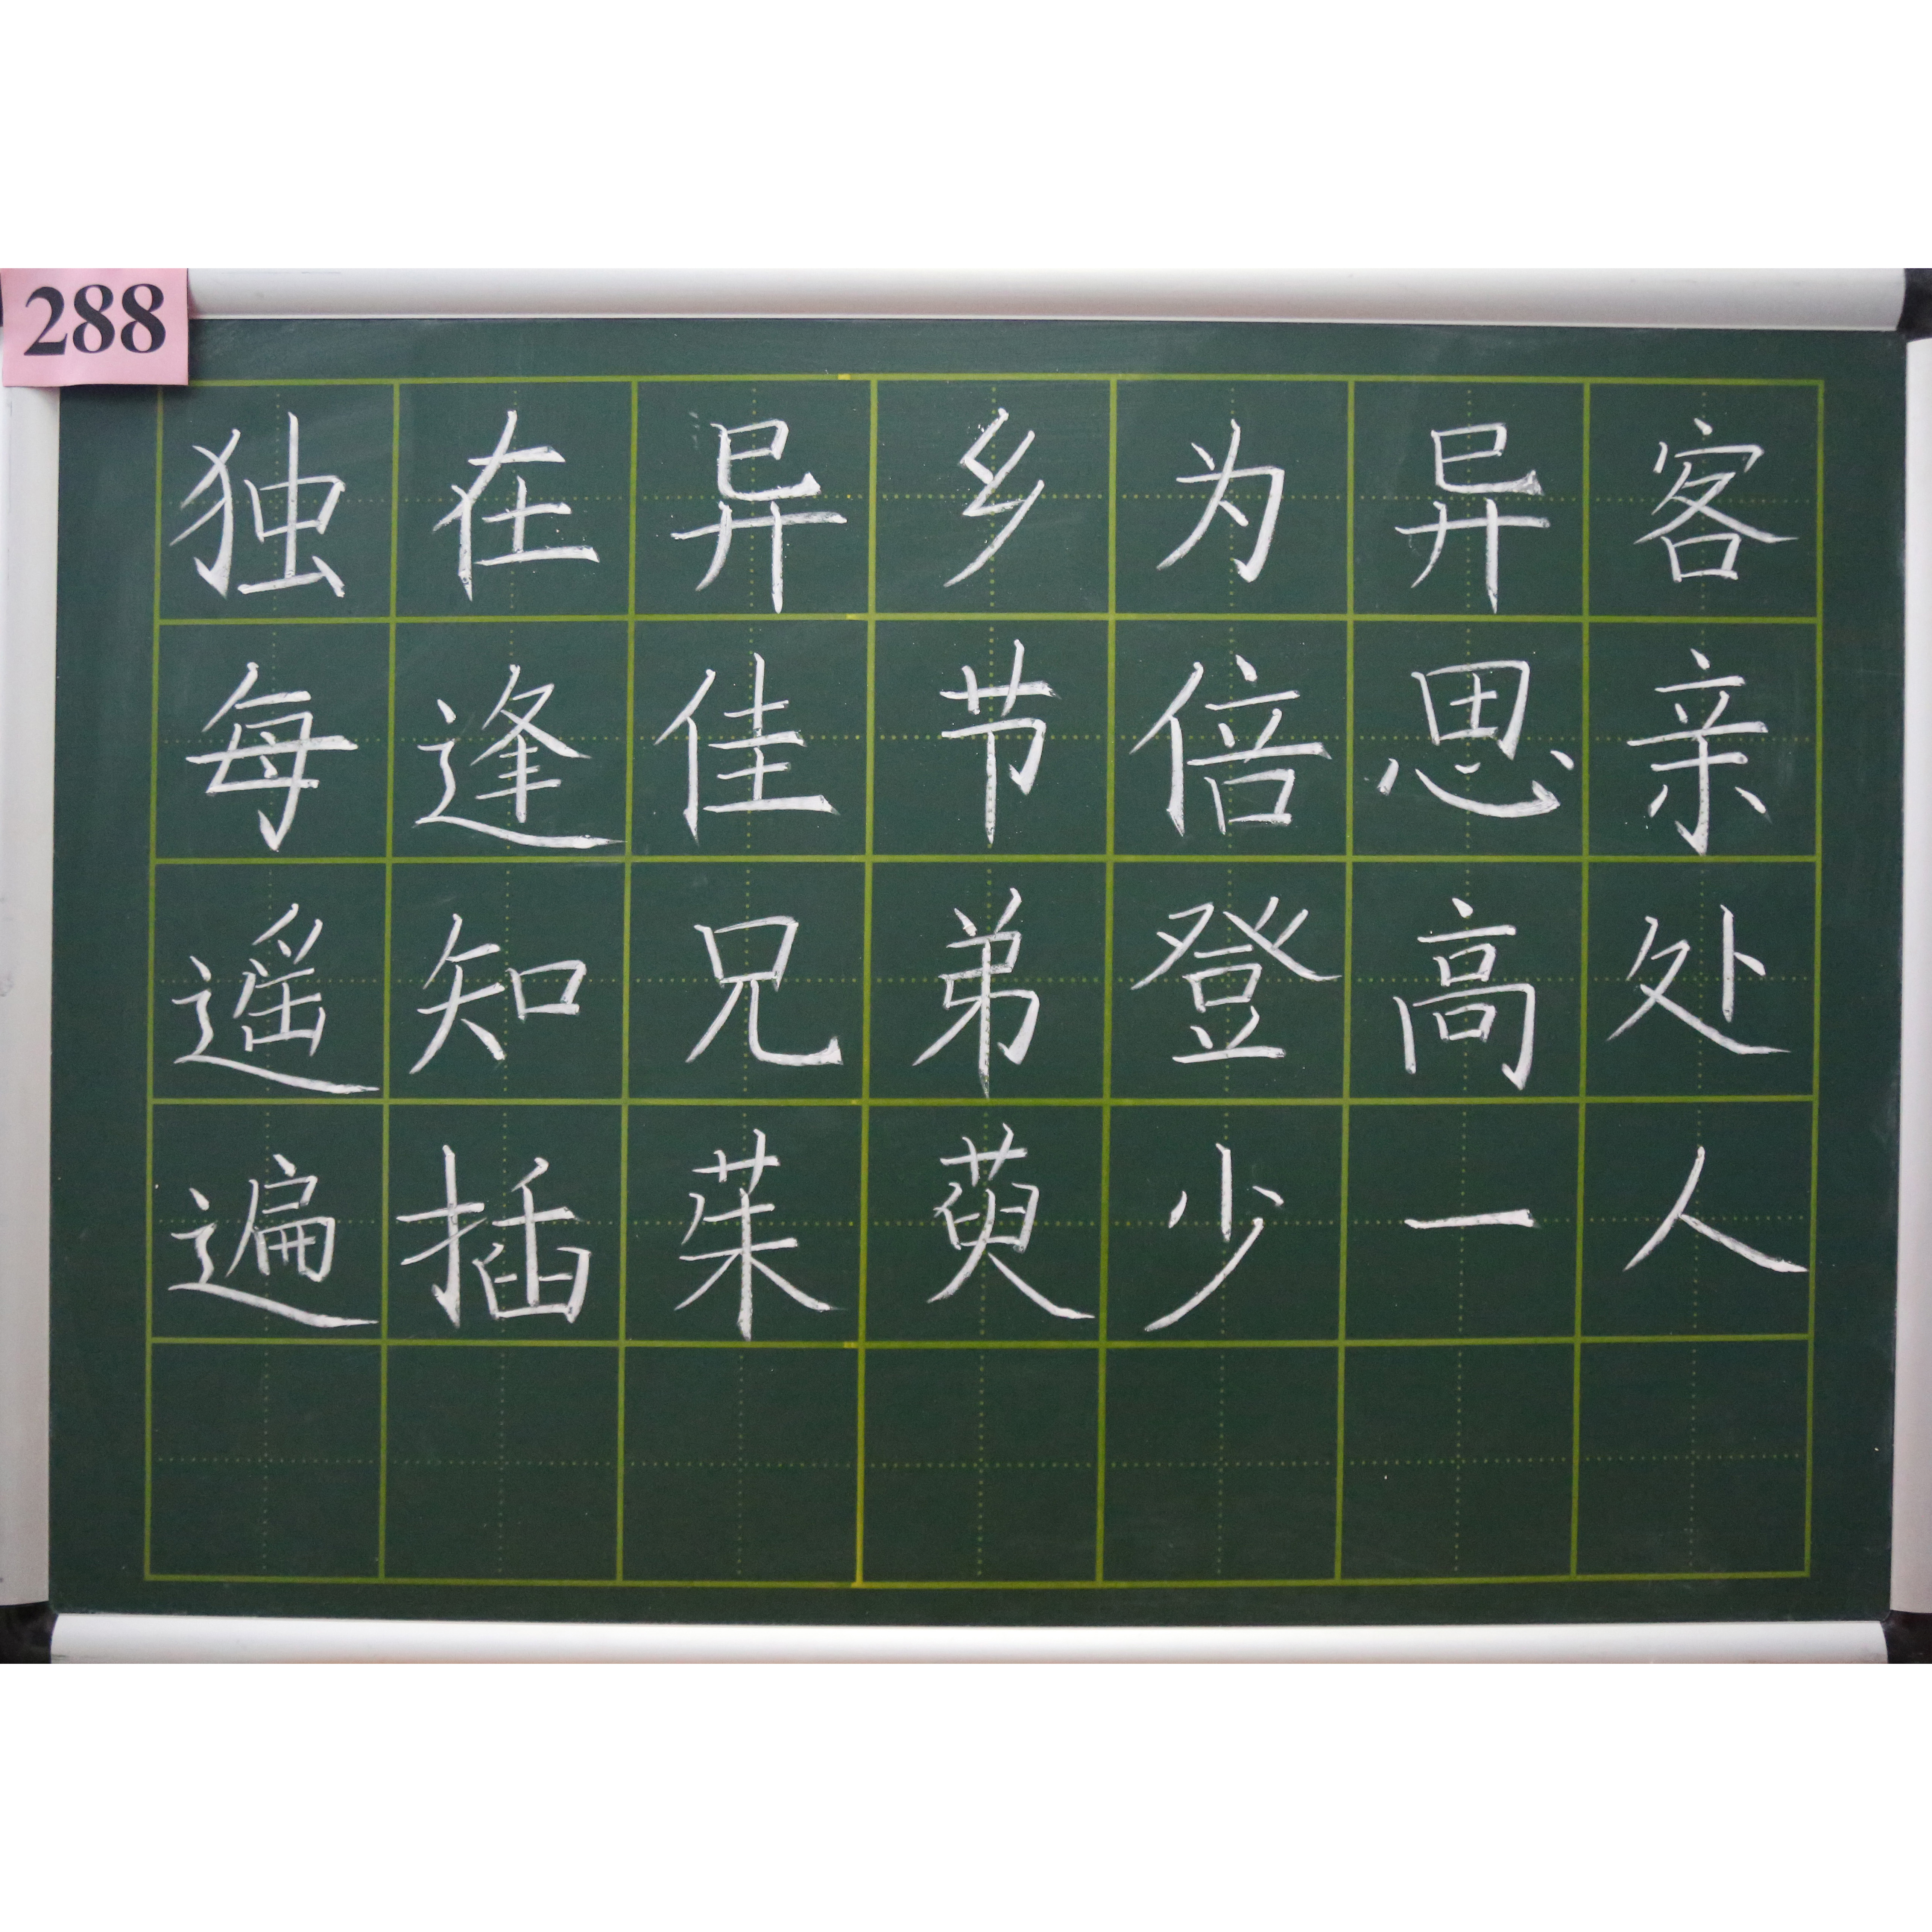 288
独在异乡为异客
每逢佳节倍思亲
遥知兄弟登高处
遍插茱萸少一人